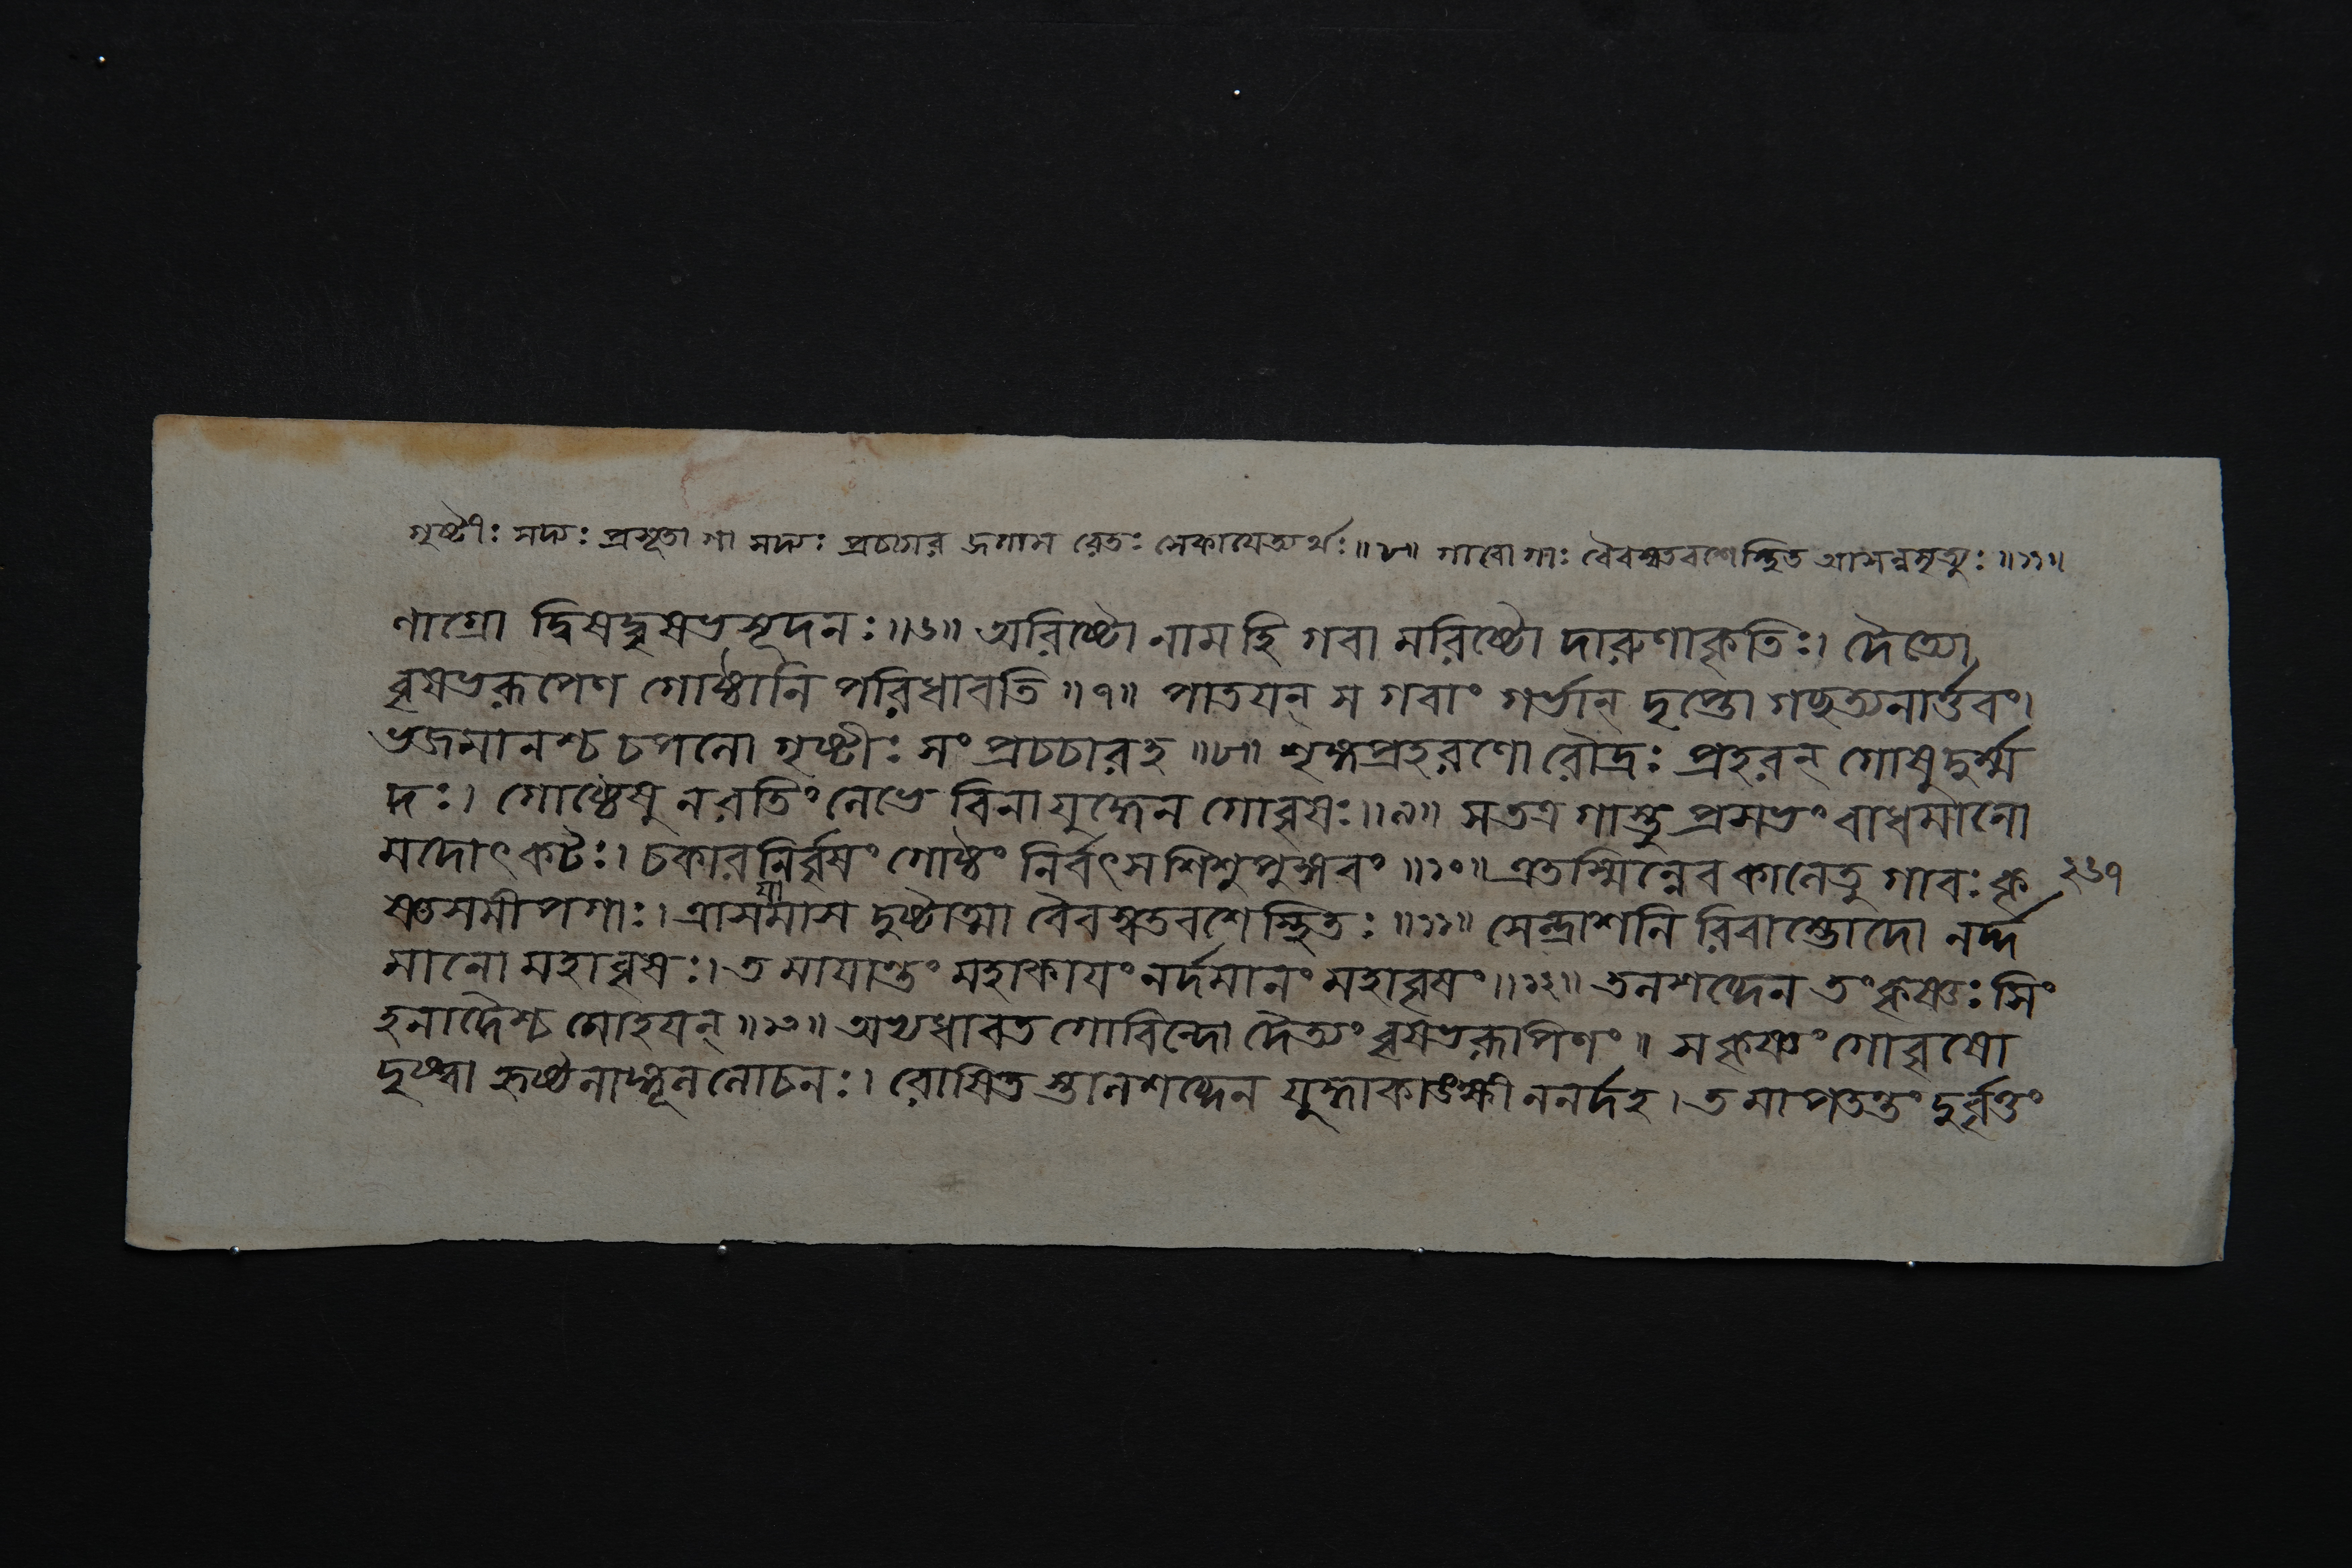 গৃষ্টীঃ সদ্যঃ প্রসূতা গা সদ্যঃ প্রচচার জগাম রেতঃ সেকায়েত্যর্থঃ॥৮॥ গাবো গাঃ বৈবস্বতবশেস্থিত আসন্নমৃত্যুঃ॥১১॥
ণাগ্রো দ্বিষদ্বৃষভসূদনঃ॥৬॥ অরিষ্টো নামহি গবা মরিষ্টো দারুণাকৃতিঃ। দৈত্যো
বৃষভরূপেণ গোষ্ঠানি পরিধাবতি॥৭॥ পাতয়ন্ স গবাং গর্ভান্ দৃপ্তো গচ্ছত্যনার্ত্তবং।
ভজমানশ্চ চপলো গৃষ্টীঃ সং প্রচচারহ॥৮॥ শৃঙ্গপ্রহরণো রৌদ্রঃ প্রহরন্ গোষুদুর্ম্ম
দঃ। গোষ্ঠেষু নরতিং লেভে বিনাযুদ্ধেন গোবৃষঃ॥৯॥ সততত্র গাস্তু প্রসভং বাধমানো
মদোৎকটঃ। চকারনির্বৃষং গোষ্ঠং নির্বৎসশিশুপুঙ্গবং॥১০॥ এতস্মিন্নেব কালেতু গাবঃ কৃ ২৬৭
ষ্ণসমীপগাঃ। ত্রাসয়ামাস দুষ্টাত্মা বৈবস্বতবশেস্থিতঃ॥১১॥ সেন্দ্রাশনি রিবাম্ভোদো নর্দ্দ
মানো মহাবৃষঃ। ত মায়ান্তং মহাকায়ং নর্দমানং মহাবৃষং॥১২॥ তলশব্দেন তং কৃষ্ণঃ সিং
হনাদৈশ্চ মোহয়ন্॥১৩॥ অভ্যধাবত গোবিন্দো দৈত্যং বৃষভরূপিণং॥ সকৃষ্ণং গোবৃষো
দৃষ্ট্বা হৃষ্টলাঙ্গূললোচনঃ। রোষিত স্তালশব্দেন যুদ্ধাকাঙ্ক্ষী ননর্দহ। ত মাপতন্তং দুর্বৃত্তং